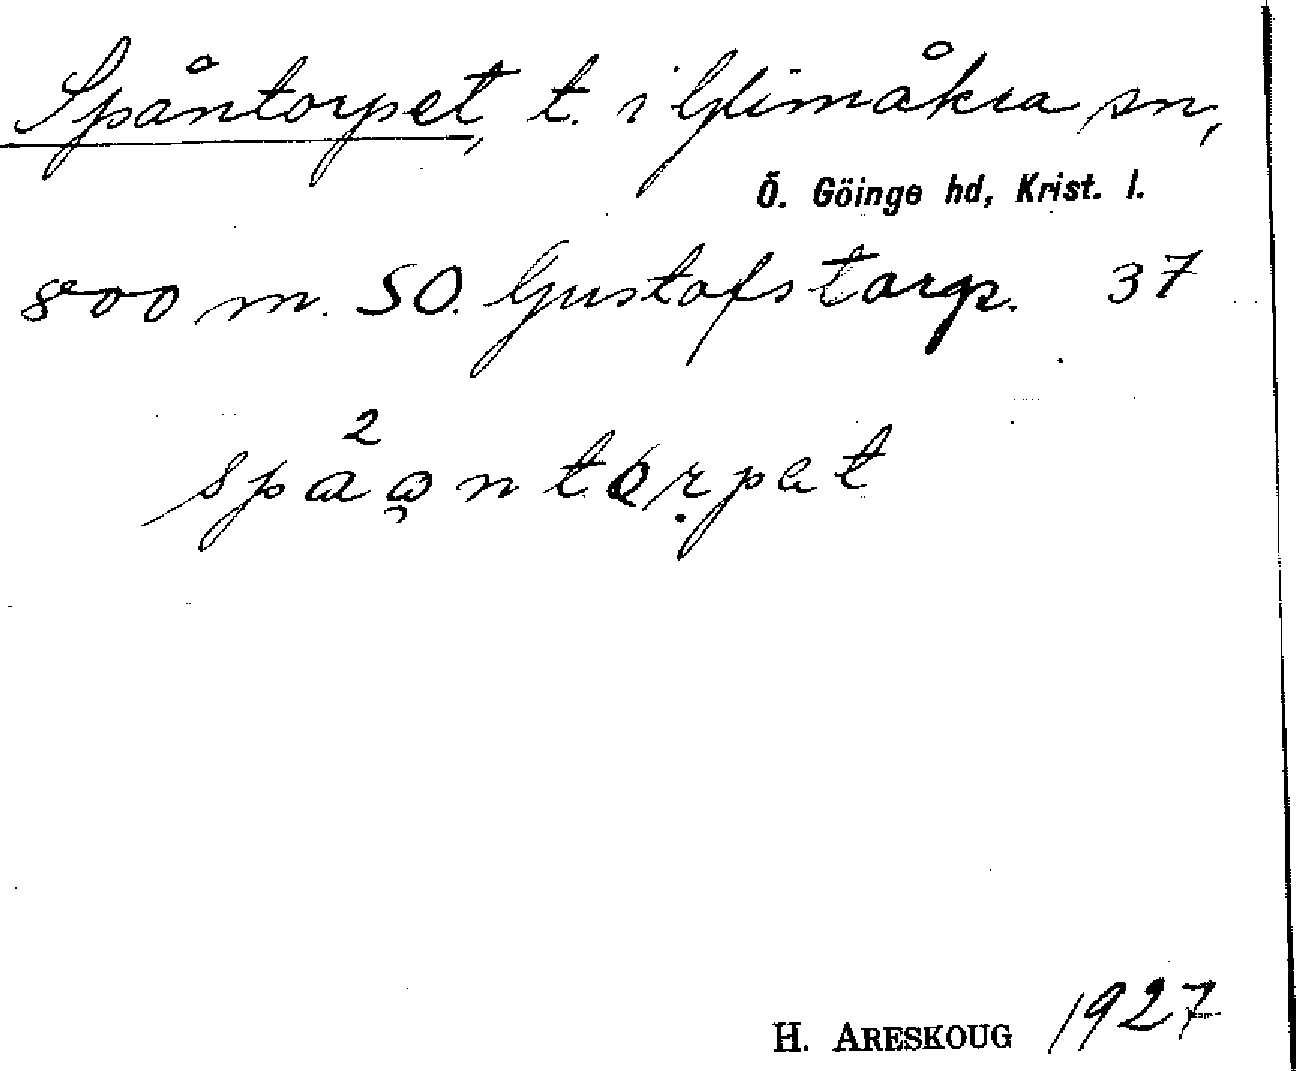 Spåntorpet, t. i Glimåkra sn,
Ö. Göinge hd, Krist. l.
800 m. SO. Gustafstorp. 37
H. ARESKOUG 1927